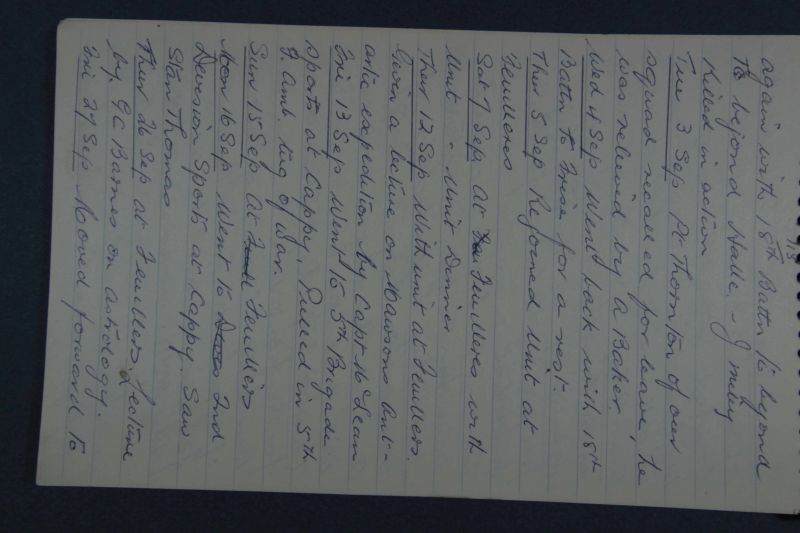 again with 18th Battn to beyond
to beyond Halle. - J
Killed in action
Tue 3 Sep Pt Thornton of our
squad recalled for leave, he
was relieved by A Baker.
Wed 4 Sep Went back with 18th
Battn to Frise for a rest.
Thur 5 Sep Rejoined Unit at
Feuilleres
Sat 7 Sep. At Feuilleres with
Unit - Unit Dinner
Thur 12 Sep With unit at Feuillers.
Given a lecture on Mawsons Ant-
artic expedition by Capt McLean
Fri 13 Sep Went to 5th Brigade
Sports at Cappy. Pulled in 5th
F. Amb. tug of War.
Sun 15 Sep At Feuillers
Mon 16 Sep. Went to 2nd
Devision Sports at Cappy. Saw
Stan Thomas
Thur 26 Sep at Feuillers. Lecture
by G C Barnes on astrology.
Fri 27 Sep Moved forward to